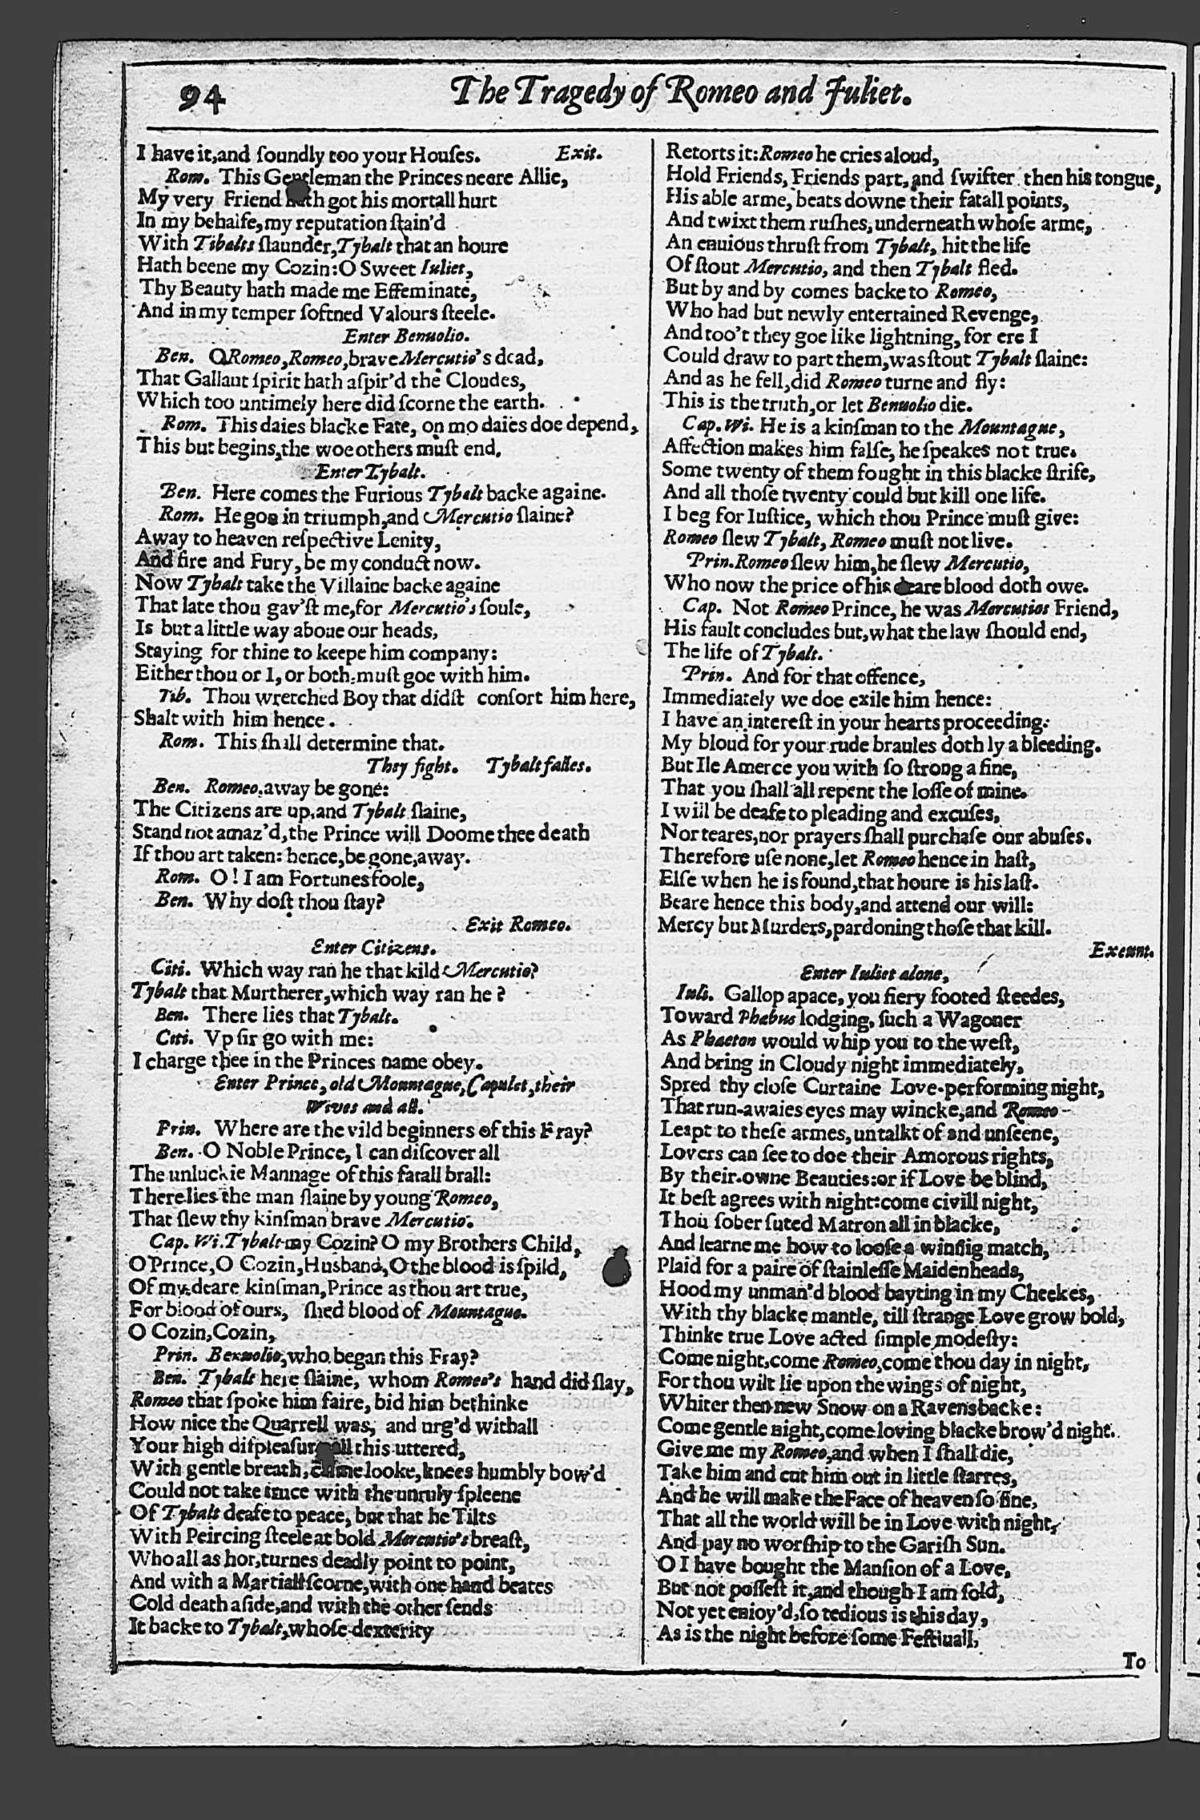 94
The Tragedy of Romeo and Juliet.
I haue it,and ſoundly too your Houſes. Exit.
Rom. This Gentleman the Princes neere Allie,
My very Friend hath got his mortall hurt
In my behalfe,my reputation ſtain'd
With Tibalts ſlaunder,Tybalt that an houre
Hath beene my Cozin:O Sweet Iuliet,
Thy Beauty hath made me Effeminate,
And in my temper ſoftned Valours ſteele.
Enter Benuolio.
Ben. O Romeo,Romeo,braue Mercutio's dead,
That Gallant ſpirit hath aſpir'd the Cloudes,
Which too untimely here did ſcorne the earth.
Rom. This daies blacke Fate, on mo daies doe depend,
This but begins,the woe others muſt end.
Enter Tybalt.
Ben. Here comes the Furious Tybalt backe againe.
Rom. He gon in triumph,and Mercutio ſlaine?
Away to heaven reſpective Lenity,
And fire and Fury, be my conduct now.
Now Tybalt take the Villaine backe againe
That late thou gav'ſt me,for Mercutio's ſoule,
Is but a little way aboue our heads,
Staying for thine to keepe him company:
Either thou or I, or both,muſt goe with him.
Tib. Thou wretched Boy that didſt conſort him here,
Shalt with him hence.
Rom. This ſhall determine that.
They fight. Tybalt falles.
Ben. Romeo,away be gone:
The Citizens are up,and Tybalt ſlaine,
Stand not amaz'd,the Prince will Doome thee death
If thou art taken: hence,be gone,away.
Rom. O! I am Fortunes foole,
Ben. Why doſt thou ſtay?
Exit Romeo.
Enter Citizens.
Citi. Which way ran he that kild Mercutio?
Tybalt that Murtherer,which way ran he?
Ben. There lies that Tybalt.
Citi. Vp ſir go with me:
I charge thee in the Princes name obey.
Enter Prince, old Mountague, Capulet, their
Wives and all.
Prin. Where are the vild beginners of this Fray?
Ben. O Noble Prince, I can diſcover all
The unluckie Mannage of this fatall brall:
There lies the man ſlaine by young Romeo,
That ſlew thy kinſman brave Mercutio.
Cap. Wi. Tybalt my Cozin? O my Brothers Child,
O Prince,O Cozin,Husband,O the blood is ſpild,
Of my deare kinſman,Prince as thou art true,
For blood of ours, ſhed blood of Mountague.
O Cozin,Cozin,
Prin. Benuolio, who began this Fray?
Ben. Tybalt here ſlaine, whom Romeo's hand did ſlay,
Romeo that ſpoke him faire, bid him bethinke
How nice the Quarrell was, and urg'd withall
Your high diſpleaſure all this uttered,
With gentle breath, calme looke,knees humbly bow'd
Could not take truce with the unruly ſpleene
Of Tybalt deafe to peace, but that he Tilts
With Peircing ſteele at bold Mercutio's breaſt,
Who all as hot,turnes deadly point to point,
And with a Martiall ſcorne,with one hand beates
Cold death aſide,and with the other ſends
It backe to Tybalt,whoſe dexterity
Retorts it:Romeo he cries aloud,
Hold Friends, Friends part, and ſwifter then his tongue,
His able arme, beats downe their fatall points,
And twixt them ruſhes, underneath whoſe arme,
An enuious thruſt from Tybalt, hit the life
Of ſtout Mercutio, and then Tybalt fled.
But by and by comes backe to Romeo,
Who had but newly entertained Revenge,
And too't they goe like lightning, for ere I
Could draw to part them,was ſtout Tybalt ſlaine:
And as he fell,did Romeo turne and fly:
This is the truth,or let Benuolio die.
Cap. Wi. He is a kinſman to the Mountague,
Affection makes him falſe, he ſpeakes not true.
Some twenty of them fought in this blacke ſtrife,
And all thoſe twenty could but kill one life.
I beg for Iuſtice, which thou Prince muſt give:
Romeo ſlew Tybalt, Romeo muſt not live.
Prin. Romeo ſlew him,he ſlew Mercutio,
Who now the price of his deare blood doth owe.
Cap. Not Romeo Prince, he was Mercutios Friend,
His fault concludes but,what the law ſhould end,
The life of Tybalt.
Prin. And for that offence,
Immediately we doe exile him hence:
I have an intereſt in your hearts proceeding:
My bloud for your rude braules doth ly a bleeding.
But Ile Amerce you with ſo ſtrong a fine,
That you ſhall all repent the loſſe of mine.
I will be deafe to pleading and excuſes,
Nor teares,nor prayers ſhall purchaſe our abuſes.
Therefore uſe none,let Romeo hence in haſt,
Elſe when he is found,that houre is his laſt.
Beare hence this body,and attend our will:
Mercy but Murders,pardoning thoſe that kill.
Exeunt.
Enter Iuliet alone,
Iuli. Gallop apace, you fiery footed ſteedes,
Toward Phœbus lodging, ſuch a Wagoner
As Phaeton would whip you to the weſt,
And bring in Cloudy night immediately,
Spred thy cloſe Curtaine Love-performing night,
That run-awaies eyes may wincke,and Romeo
Leapt to theſe armes, untalkt of and unſeene,
Lovers can ſee to doe their Amorous rights,
By their owne Beauties:or if Love be blind,
It beſt agrees with night:come civill night,
Thou ſober ſuted Matron all in blacke,
And learne me how to looſe a winſig match,
Plaid for a paire of ſtainleſſe Maidenheads,
Hood my unman'd blood bayting in my Cheekes,
With thy blacke mantle, till ſtrange Love grow bold,
Thinke true Love acted ſimple modeſty:
Come night,come Romeo,come thou day in night,
For thou wilt lie upon the wings of night,
Whiter then new Snow on a Ravens backe:
Come gentle night,come loving blacke brow'd night.
Give me my Romeo,and when I ſhall die,
Take him and cut him out in little ſtarres,
And he will make the Face of heaven ſo fine,
That all the world will be in Love with night,
And pay no worſhip to the Gariſh Sun.
O I have bought the Manſion of a Love,
But not poſſeſt it,and though I am ſold,
Not yet enioy'd,ſo tedious is this day,
As is the night before ſome Feſtiuall,
To